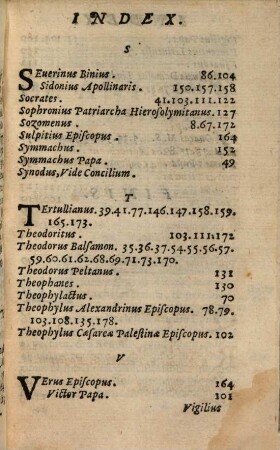 INDEX.
S
SEuerinus Binius. 86.104
Sidonius Apollinaris. 150.157.158
Socrates. 41.103.111.122
Sophronius Patriarcha Hierosolymitanus. 127
Sozomenus. 8.67.172
Sulpitius Episcopus. 164
Symmachus. 152
Symmachus Papa. 49
Synodus, Vide Concilium.
T
TErtullianus. 39.41.77.146.147.158.159.
165.173.
Theodoritus. 103.111.172
Theodorus Balsamon. 35.36.37.54.55.56.57.
59.60.61.62.68.69.71.73.170.
Theodorus Peltanus. 131
Theophanes. 130
Theophylactus. 70
Theophylus Alexandrinus Episcopus. 78.79.
103.108.135.178.
Theophylus Cæsareæ Palestinæ Episcopus. 102
V
VErus Episcopus. 164
Victor Papa. 101
Vigilius